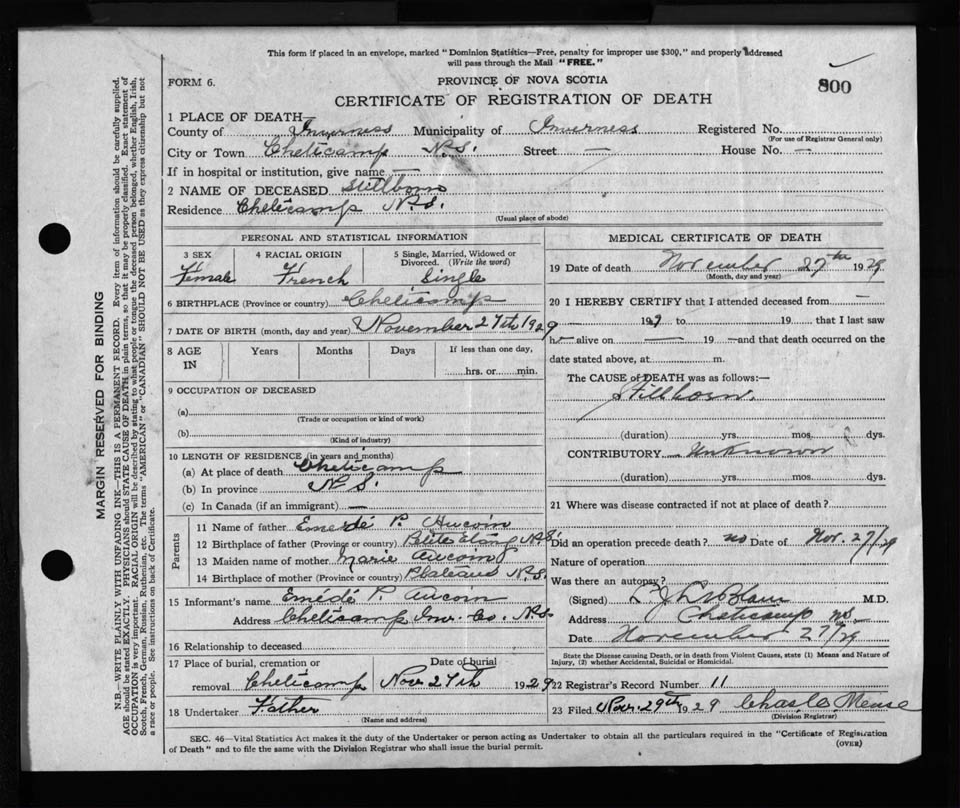 This form if placed in an envelope, marked "Dominion Statistics—Free, penalty for improper use $300," and properly addressed
will pass through the Mail "FREE."
FORM 6.
PROVINCE OF NOVA SCOTIA
800
CERTIFICATE OF REGISTRATION OF DEATH
1 PLACE OF DEATH—
County of Inverness Municipality of Inverness Registered No.
(For use of Registrar General only)
City or Town Cheticamp N.S. Street — House No. —
If in hospital or institution, give name —
2 NAME OF DECEASED Stillborn
Residence Cheticamp N.S.
(Usual place of abode)
PERSONAL AND STATISTICAL INFORMATION
3 SEX 4 RACIAL ORIGIN 5 Single, Married, Widowed or
Divorced. (Write the word)
Female French Single
6 BIRTHPLACE (Province or country) Cheticamp
7 DATE OF BIRTH (month, day and year) November 27th 1929
8 AGE Years Months Days If less than one day,
IN hrs. or min.
9 OCCUPATION OF DECEASED
(a)
(Trade or occupation or kind of work)
(b)
(Kind of industry)
10 LENGTH OF RESIDENCE (in years and months)
(a) At place of death Cheticamp
(b) In province N.S.
(c) In Canada (if an immigrant) —
Parents
11 Name of father Emédé P. Aucoin
12 Birthplace of father (Province or country) N.S.
13 Maiden name of mother Marie Aucoin
14 Birthplace of mother (Province or country) Plateaus N.S.
15 Informant's name Emédé P. Aucoin
Address Cheticamp Inv. Co. N.S.
16 Relationship to deceased
17 Place of burial, cremation or Date of burial
removal Cheticamp Nov 27th 1929
18 Undertaker Father
(Name and address)
MEDICAL CERTIFICATE OF DEATH
19 Date of death November 27th 1929
(Month, day and year)
20 I HEREBY CERTIFY that I attended deceased from —
— 19 to 19 that I last saw
h— alive on — 19 — and that death occurred on the
date stated above, at m.
The CAUSE of DEATH was as follows:—
Stillborn.
(duration) yrs. mos. dys.
CONTRIBUTORY Unknown
(duration) yrs. mos. dys.
21 Where was disease contracted if not at place of death?
Did an operation precede death? no Date of Nov. 27/29
Nature of operation
Was there an autopsy?
(Signed) M.D.
Address Cheticamp N.S.
Date November 27/29
State the Disease causing Death, or in death from Violent Causes, state (1) Means and Nature of
Injury, (2) whether Accidental, Suicidal or Homicidal.
22 Registrar's Record Number 11
23 Filed Nov. 29th 1929
(Division Registrar)
SEC. 46—Vital Statistics Act makes it the duty of the Undertaker or person acting as Undertaker to obtain all the particulars required in the "Certificate of Registration
of Death" and to file the same with the Division Registrar who shall issue the burial permit.
(OVER)
MARGIN RESERVED FOR BINDING
N.B.—WRITE PLAINLY WITH UNFADING INK—THIS IS A PERMANENT RECORD. Every item of information should be carefully supplied.
AGE should be stated EXACTLY. PHYSICIANS should STATE CAUSE OF DEATH in plain terms, so that it may be properly classified. Exact statement of
OCCUPATION is very important. RACIAL ORIGIN will be described by stating to what people or tongue the deceased person belonged, whether English, Irish,
Scotch, French, German, Russian, Ruthenian, etc. The terms "AMERICAN" or "CANADIAN" SHOULD NOT BE USED as they express citizenship but not
a race or people. See instructions on back of Certificate.